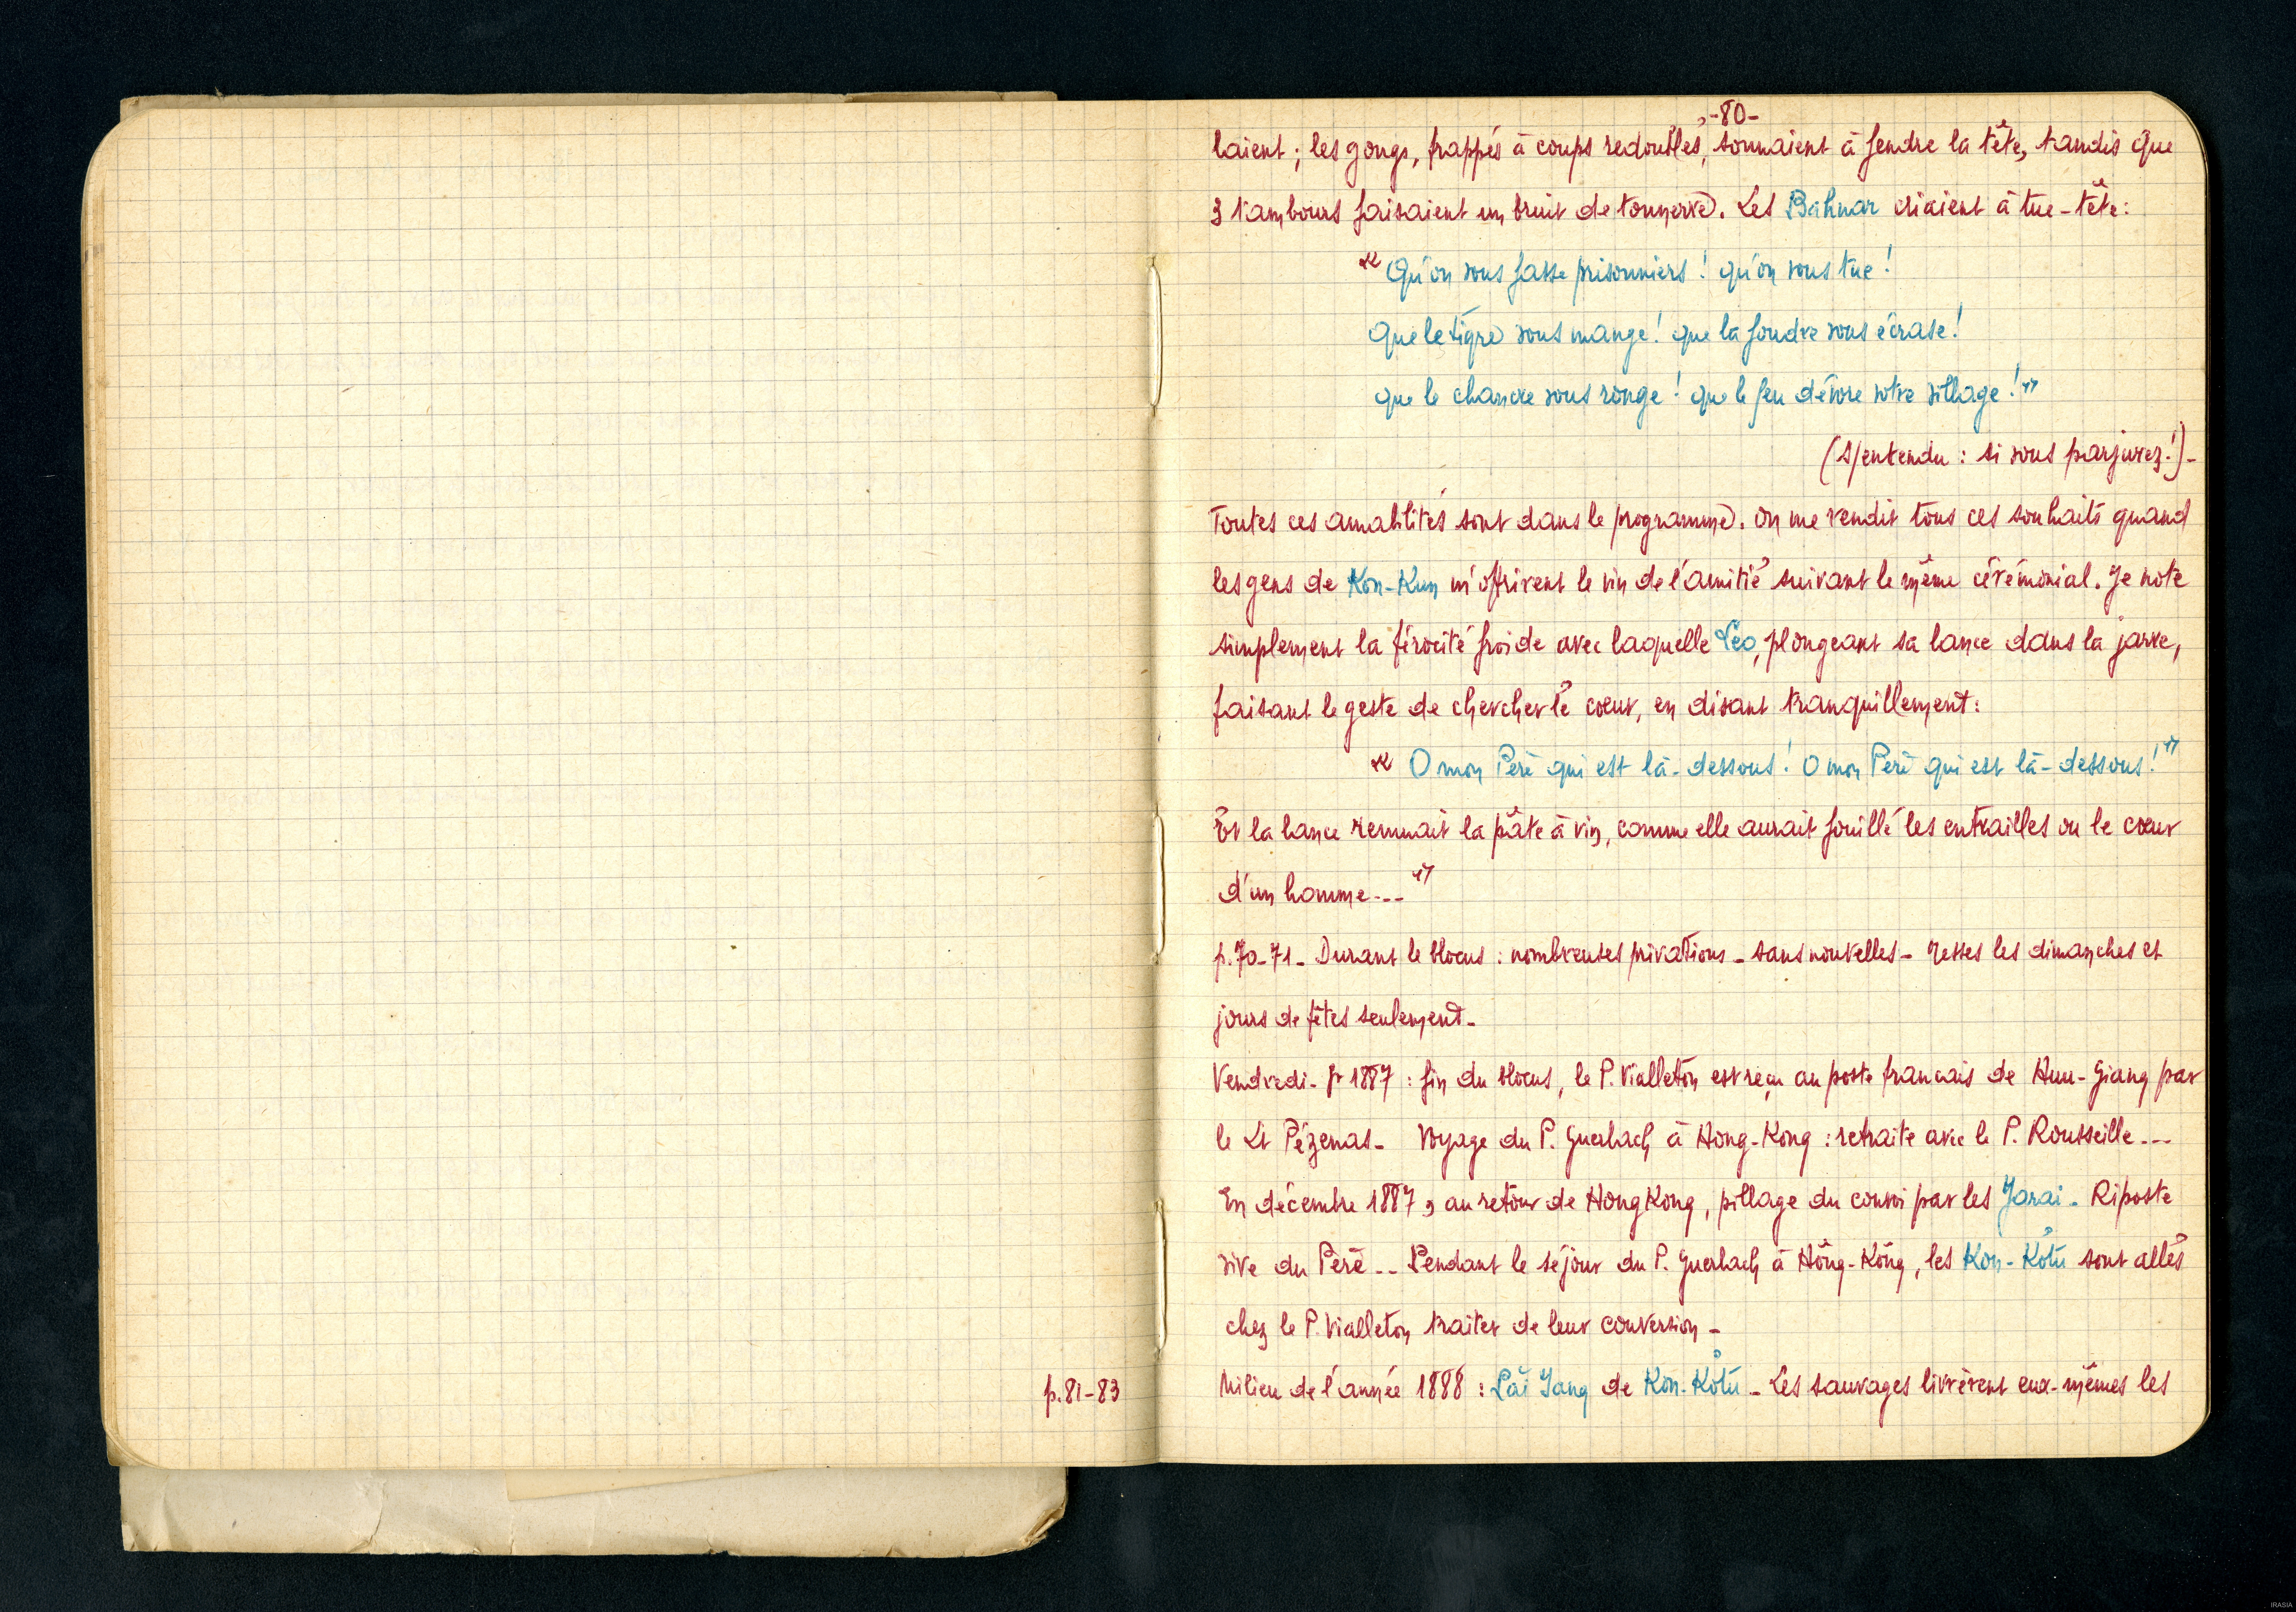 -80-
laient ; les gongs, frappés à coups redoublés, sonnaient à fendre la tête, tandis que
3 tambours faisaient un bruit de tonnerre. Les Bahnar criaient à tue-tête :
« Qu'on vous fasse prisonniers ! qu'on vous tue !
que le tigre vous mange ! que la foudre vous écrase !
que le chancre vous ronge ! que le feu dévore votre village ! »
(s/entendu : si vous parjurez !) -
Toutes ces amabilités sont dans le programme. On me rendit tous ces souhaits quand
les gens de Kon-Kun m'offrirent le vin de l'amitié suivant le même cérémonial. Je note
simplement la férocité froide avec laquelle , plongeant sa lance dans la jarre,
faisant le geste de chercher le cœur, en disant tranquillement :
« O mon Père qui est là-dessous ! O mon Père qui est là-dessous ! »
Et la lance remuait la pâte à vin, comme elle aurait fouillé les entrailles ou le cœur
d'un homme... »
p. 70-71 - Durant le blocus : nombreuses privations - sans nouvelles - Messes les dimanches et
jours de fêtes seulement -
Vendredi - 1887 : fin du blocus, le P. Vialleton est reçu au poste français de Huu-Giang par
le Lt Pézenas - Voyage du P. Guerlach à Hong-Kong : retraite avec le P. Rousseille ---
En décembre 1887, au retour de HongKong, pillage du convoi par les Jarai - Riposte
vive du Père -- Pendant le séjour du P. Guerlach à Hông-Kông, les Kon-Kơtu sont allés
chez le P. Vialleton traiter de leur conversion -
p. 81-83
Milieu de l'année 1888 : Yang de Kon-Kơtu - Les sauvages livrèrent eux-mêmes les
IRASIA